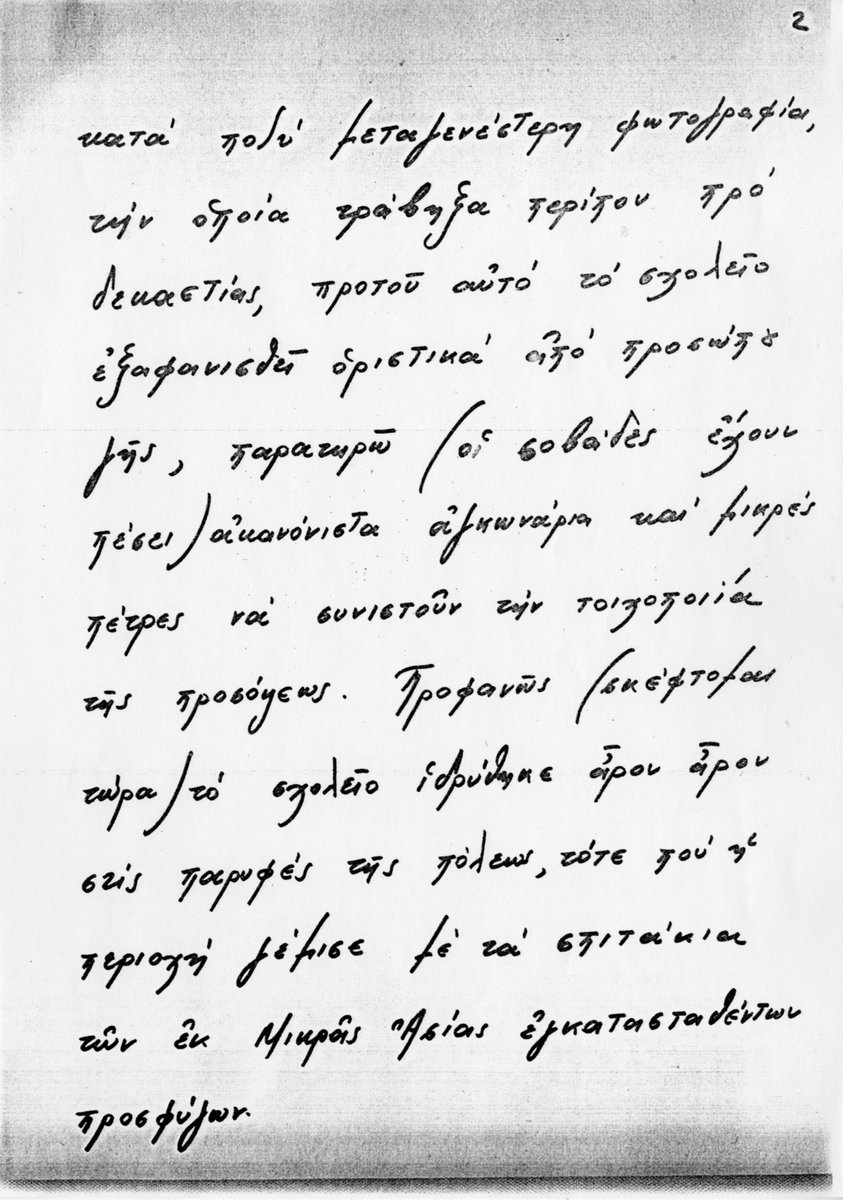 2
κατά πολύ μεταγενέστερη φωτογραφία,
τήν ὁποία τράβηξα περίπου πρό
δεκαετίας, προτοῦ αὐτό τό σχολεῖο
ἐξαφανισθεῖ ὁριστικά ἀπό προσώπου
γῆς, παρατηρῶ (οἱ σοβάδες ἔχουν
πέσει) ἀκανόνιστα ἀγκωνάρια καί μικρές
πέτρες νά συνιστοῦν τήν τοιχοποιία
τῆς προσόψεως. Προφανῶς (σκέφτομαι
τώρα) τό σχολεῖο ἱδρύθηκε ἆρον ἆρον
στίς παρυφές τῆς πόλεως, τότε πού ἡ
περιοχή γέμισε μέ τά σπιτάκια
τῶν ἐκ Μικρᾶς Ἀσίας ἐγκατασταθέντων
προσφύγων.